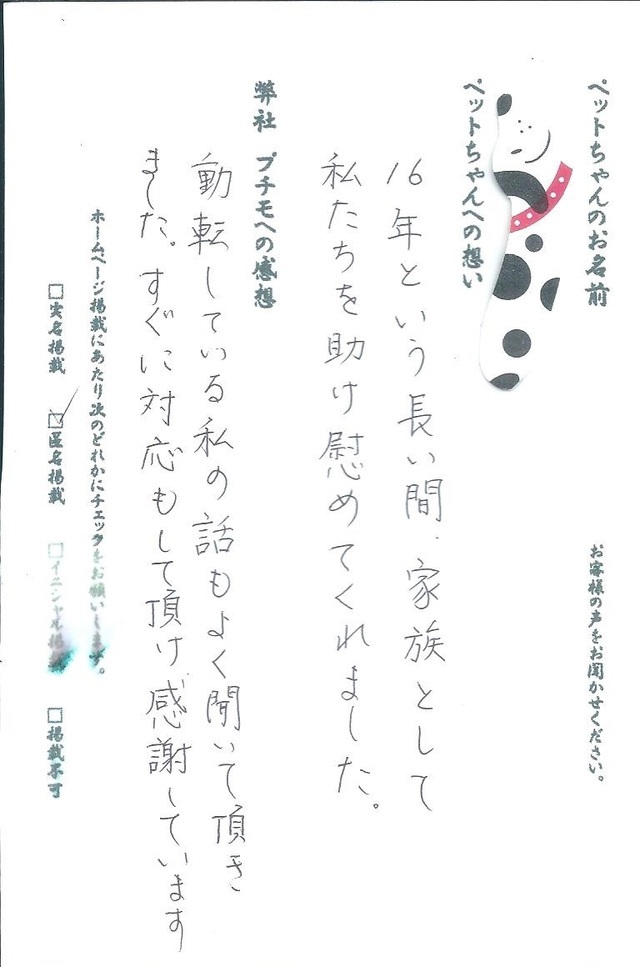 ペットちゃんのお名前
お客様の声をお聞かせください。
ペットちゃんへの想い
16年という長い間、家族として
私たちを助け慰めてくれました。
弊社 プチモへの感想
動転している私の話もよく聞いて頂き
ました。すぐに対応もして頂け感謝しています
ホームページ掲載にあたり次のどれかにチェックをお願いします。
□実名掲載 ☑匿名掲載 □イニシャル掲載 □掲載不可